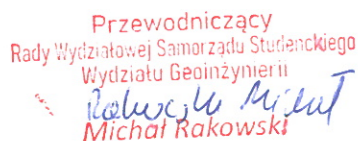 Przewodniczący
Rady Wydziałowej Samorządu Studenckiego
Wydziału Geoinżynierii
Rakowski Michał
Michał Rakowski